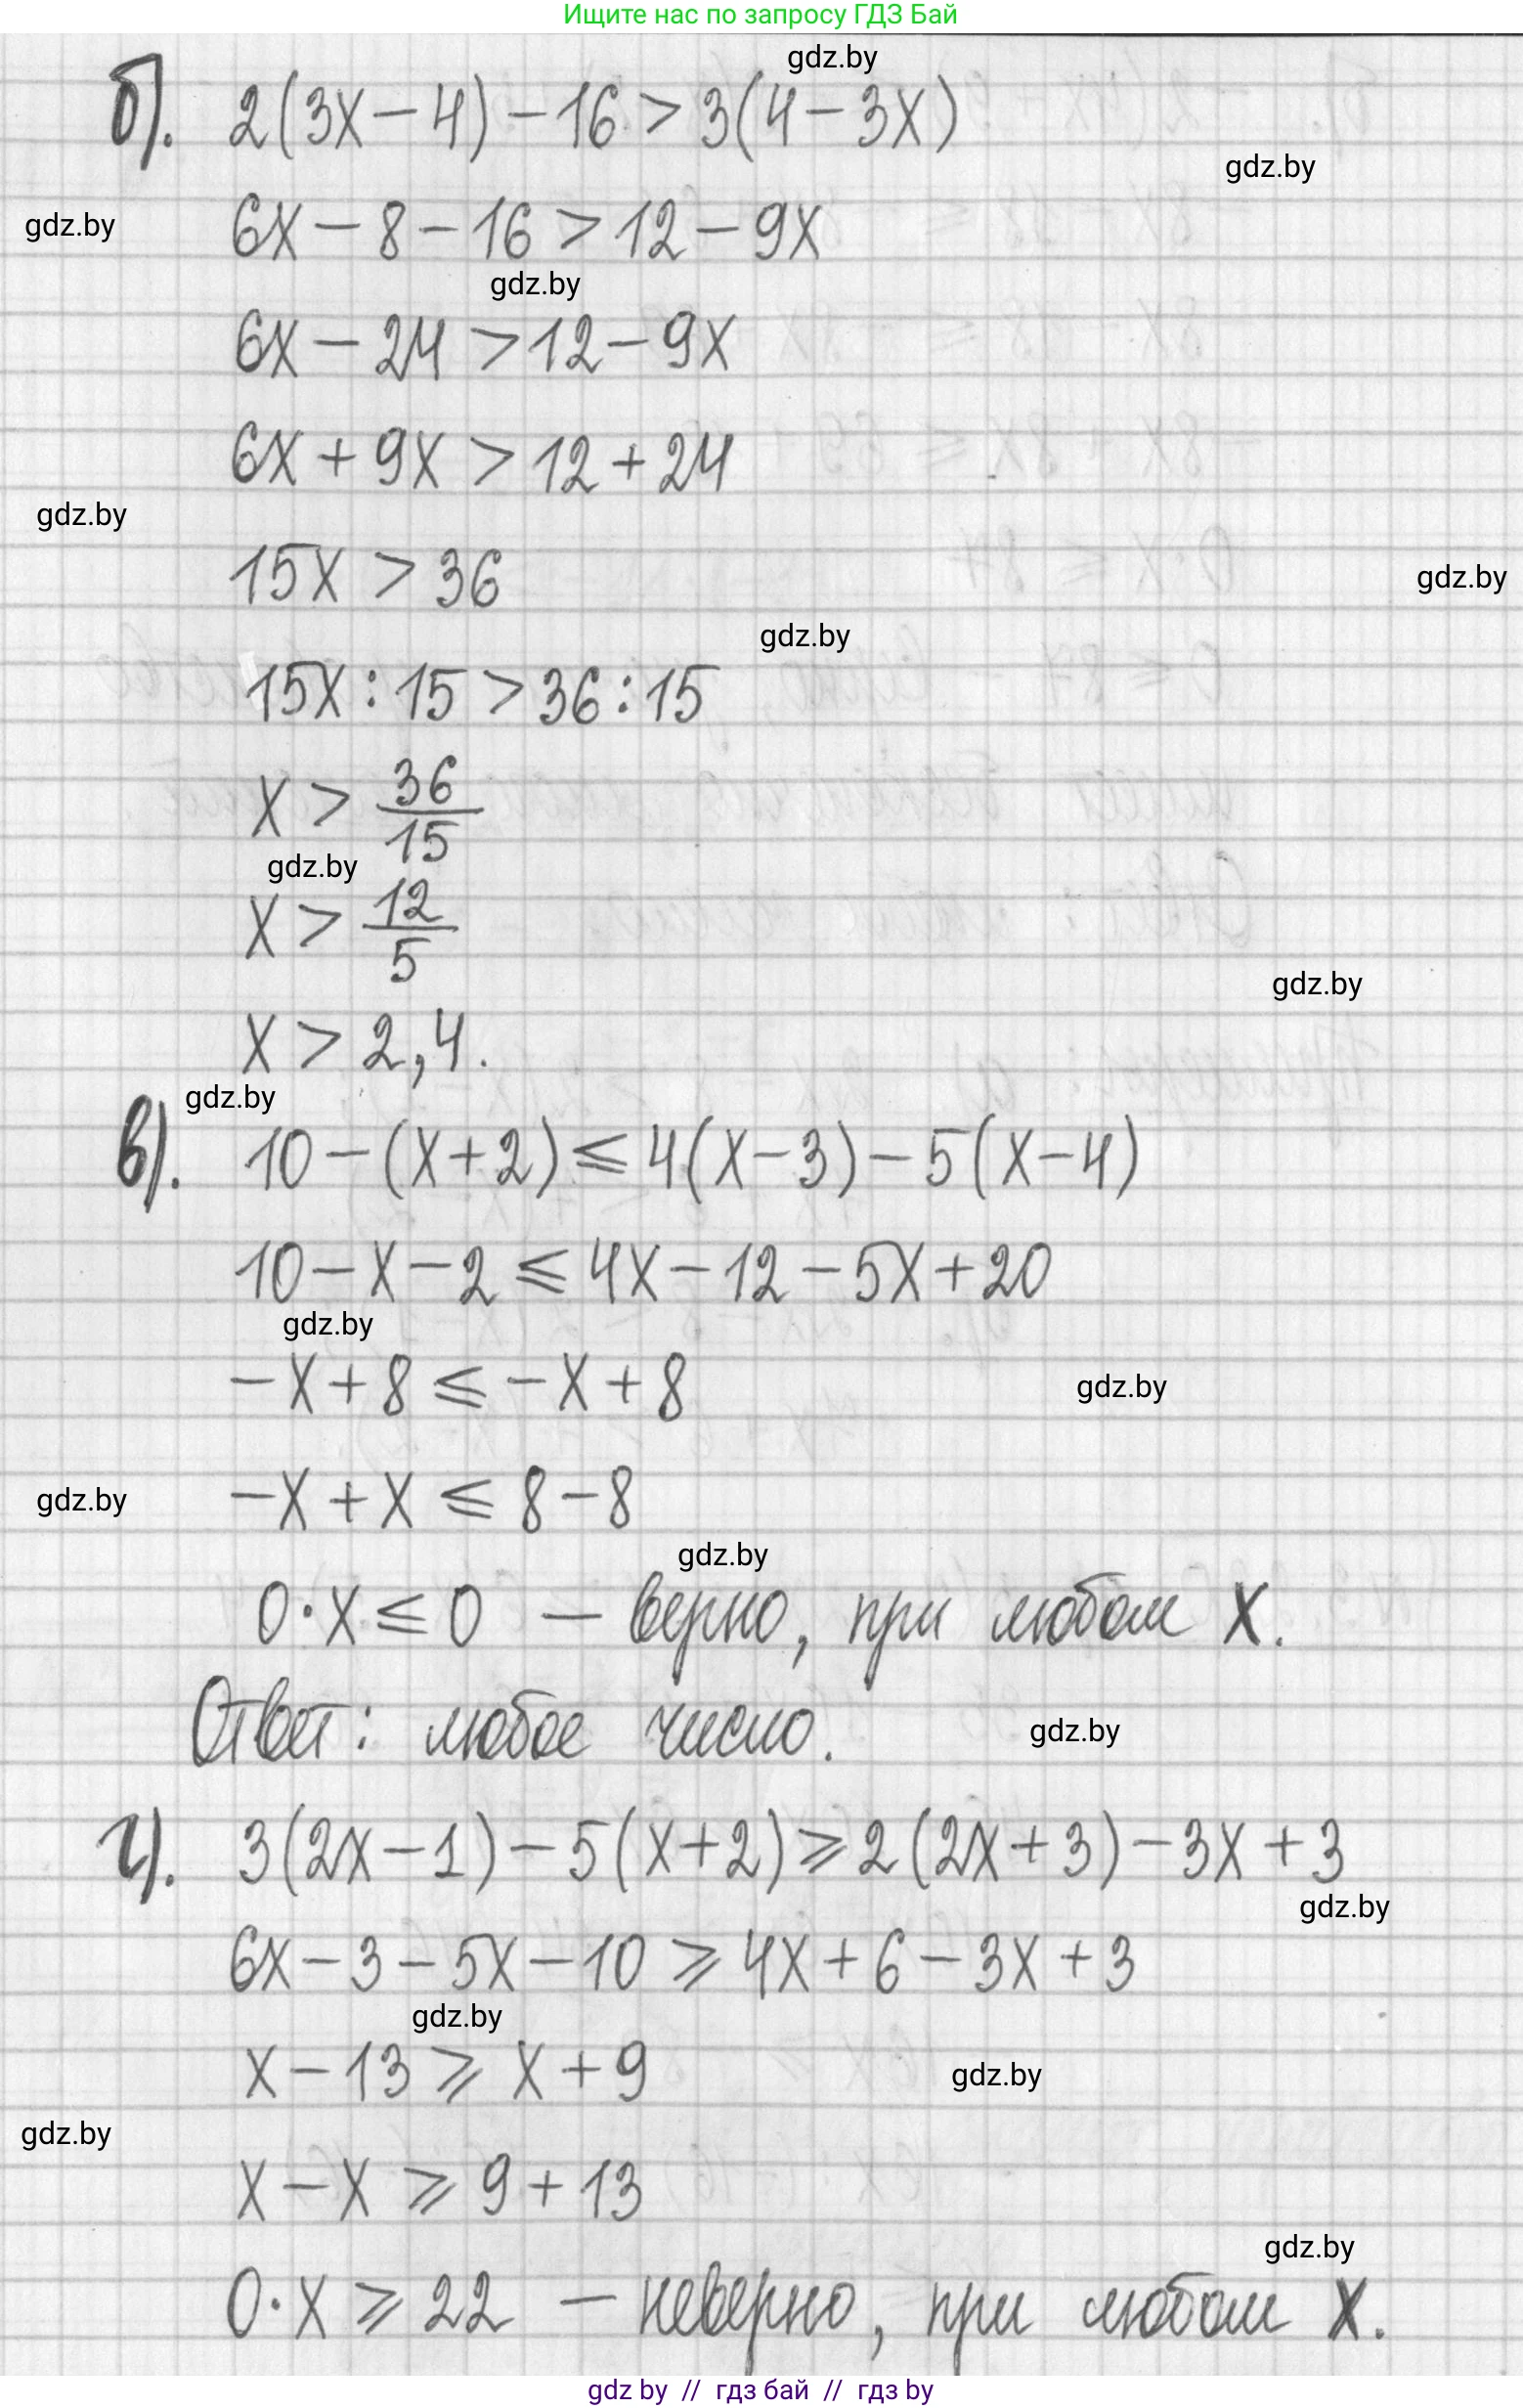 Ищите нас по запросу ГДЗ Бай
gdz.by
б). 2(3x-4)-16>3(4-3x)
gdz.by
gdz.by
6x-8-16>12-9x
gdz.by
6x-24>12-9x
6x+9x>12+24
gdz.by
15x>36
gdz.by
gdz.by
15x:15>36:15
x>36/15
gdz.by
x>12/5
gdz.by
x>2,4.
gdz.by
в). 10-(x+2)⩽4(x-3)-5(x-4)
10-x-2⩽4x-12-5x+20
gdz.by
-x+8⩽-x+8
gdz.by
-x+x⩽8-8
gdz.by
gdz.by
0·x⩽0 – верно, при любом x.
Ответ: любое число.
gdz.by
г). 3(2x-1)-5(x+2)⩾2(2x+3)-3x+3
gdz.by
6x-3-5x-10⩾4x+6-3x+3
gdz.by
x-13⩾x+9
gdz.by
gdz.by
x-x⩾9+13
gdz.by
0·x⩾22 – неверно, при любом x.
gdz by // гдз бай // гдз by